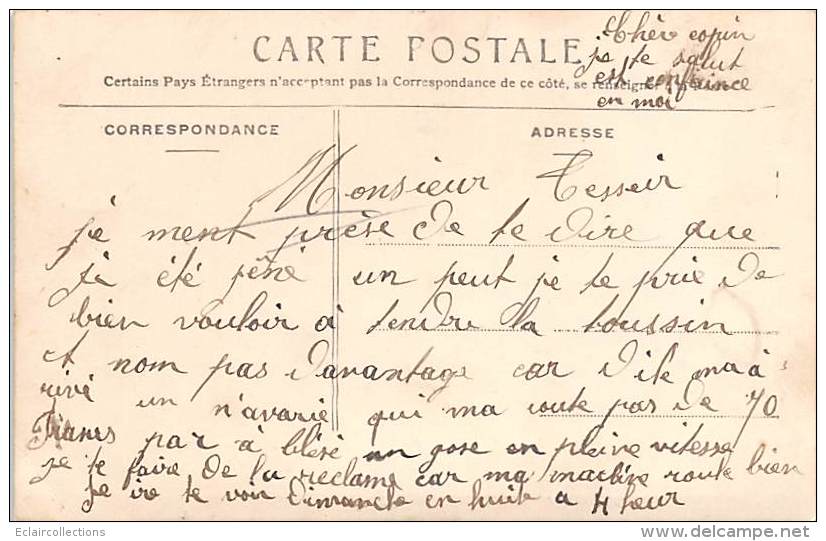 Chèr copin
CARTE POSTALE
je te salut
Certains Pays Étrangers n'acceptant pas la Correspondance de ce côté, se renseigner
est confiance
en moi
CORRESPONDANCE
ADRESSE
Monsieur Tesseir
je ment prèse de te dire que
jà été jêné un peut je te prie de
bien vouloir à tendre la toussin
et nom pas davantage car dile ma à
rivé un n'avarie qui ma coute pas de 70
Francs par à blésé un gose en pleine vitesse
je te faire de la réclame car ma machine route bien
je ire te voir Dimanche en huit a 4 heur
Eclaircollections
www.delcampe.net